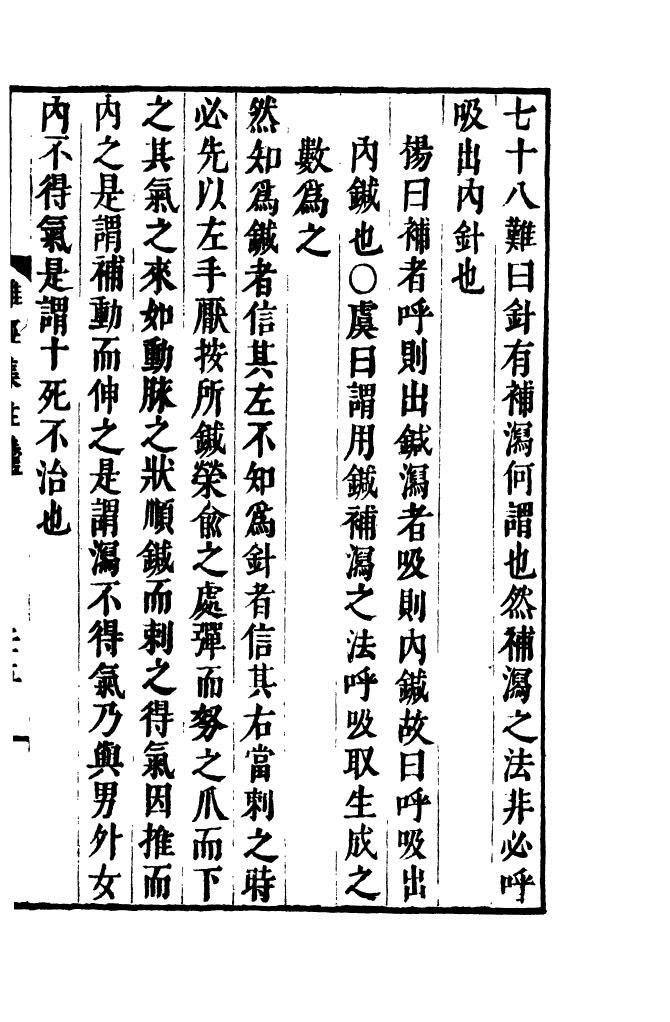 七十八難曰針有補瀉何謂也然補瀉之法非必呼
吸出內針也
楊曰補者呼則出鍼瀉者吸則內鍼故曰呼吸出
內鍼也○虞曰謂用鍼補瀉之法呼吸取生成之
數爲之
然知爲鍼者信其左不知爲針者信其右當刺之時
必先以左手厭按所鍼滎俞之處彈而努之爪而下
之其氣之來如動脉之狀順鍼而刺之得氣因推而
內之是謂補動而伸之是謂瀉不得氣乃與男外女
內不得氣是謂十死不治也